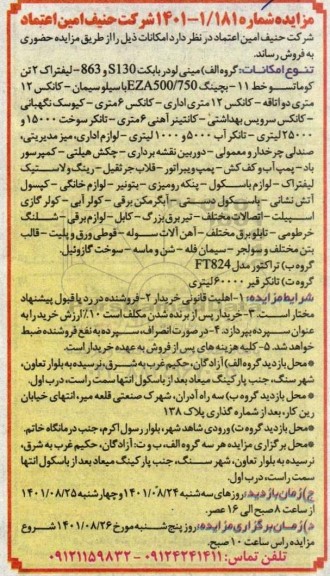 مزایده شماره ۱/۱۸۱-۱۴۰۱ شرکت حنیف امین اعتماد
شرکت حنیف امین اعتماد در نظر دارد امکانات ذیل را از طریق مزایده حضوری
به فروش رساند.
تنوع امکانات: گروه الف) مینی لودر بابکت S130 و 863 - لیفتراک ۲ تن
کوماتسو خط ۱۱ - بچینگ EZA500/750 با سیلو سیمان - کانکس ۱۲
متری دو اتاقه - کانکس ۱۲ متری اداری - کانکس ۶ متری - کیوسک نگهبانی
- کانکس سرویس بهداشتی - کانتینر آهنی ۶ متری - تانکر سوخت ۱۵۰۰۰ و
۲۵۰۰۰ لیتری - تانکر آب ۵۰۰۰ و ۱۰۰۰ لیتری - لوازم اداری، میز مدیریتی،
صندلی چرخدار و معمولی - دوربین نقشه برداری - چکش هیلتی - کمپرسور
باد - پمپ آب و کف کش - پمپ ویبراتور - قلاب جرثقیل - رینگ و لاستیک
لیفتراک - لوازم باسکول - پنکه رومیزی - یتونیر - لوازم خانگی - کپسول
آتش نشانی - باسکول دستی - آبگرمکن برقی - کولر آبی - کولر گازی
اسپیلت - اتصالات مختلف - تیر برق بزرگ - کابل - لوازم برقی - شلنگ
خرطومی - تابلو برق مختلف - آهن آلات سوله - قوطی ورق و پلیت - قالب
بتن مختلف و سولجر - سیمان فله - شن و ماسه - سوخت گازوئیل.
گروه ب) تراکتور مدل FT824
گروه ت) تانکر قیر ۶۰۰۰۰ لیتری
شرایط مزایده: ۱- اهلیت قانونی خریدار ۲- فروشنده در رد یا قبول پیشنهاد
مختار است. ۳- خریدار پس از برنده شدن مکلف است ۱۰٪ ارزش خرید را به
عنوان سپرده بپردازد. ۴- در صورت انصراف، سپرده به نفع فروشنده ضبط
خواهد شد. ۵- کلیه هزینه های پس از فروش به عهده خریدار است.
* محل بازدید گروه الف) آزادگان، حکیم غرب به شرق، نرسیده به بلوار تعاون،
شهر سنگ، جنب پارکینگ میعاد بعد از باسکول انتها سمت راست، درب اول.
* محل بازدید گروه ب) سه راه آدران، شهرک صنعتی قلعه میر، انتهای خیابان
زین کار، بعد از شماره گذاری پلاک ۱۳۸
* محل بازدید گروه ت) ورودی شاهد شهر، بلوار رسول اکرم، جنب درمانگاه خاتم.
* محل برگزاری مزایده هر سه گروه الف، ب و ت: آزادگان، حکیم غرب به شرق،
نرسیده به بلوار تعاون، شهر سنگ، جنب پارکینگ میعاد بعد از باسکول انتها
سمت راست، درب اول.
ج) زمان بازدید: روزهای سه شنبه ۱۴۰۱/۰۸/۲۴ و چهارشنبه ۱۴۰۱/۰۸/۲۵
از ساعت ۸ صبح الی ۱۶ عصر.
د) زمان برگزاری مزایده: روز پنج شنبه مورخ ۱۴۰۱/۰۸/۲۶ شروع
مزایده راس ساعت ۱۰ صبح.
تلفن تماس: ۰۹۱۲۴۲۴۱۴۱۱ - ۰۹۱۲۱۱۵۹۸۳۳